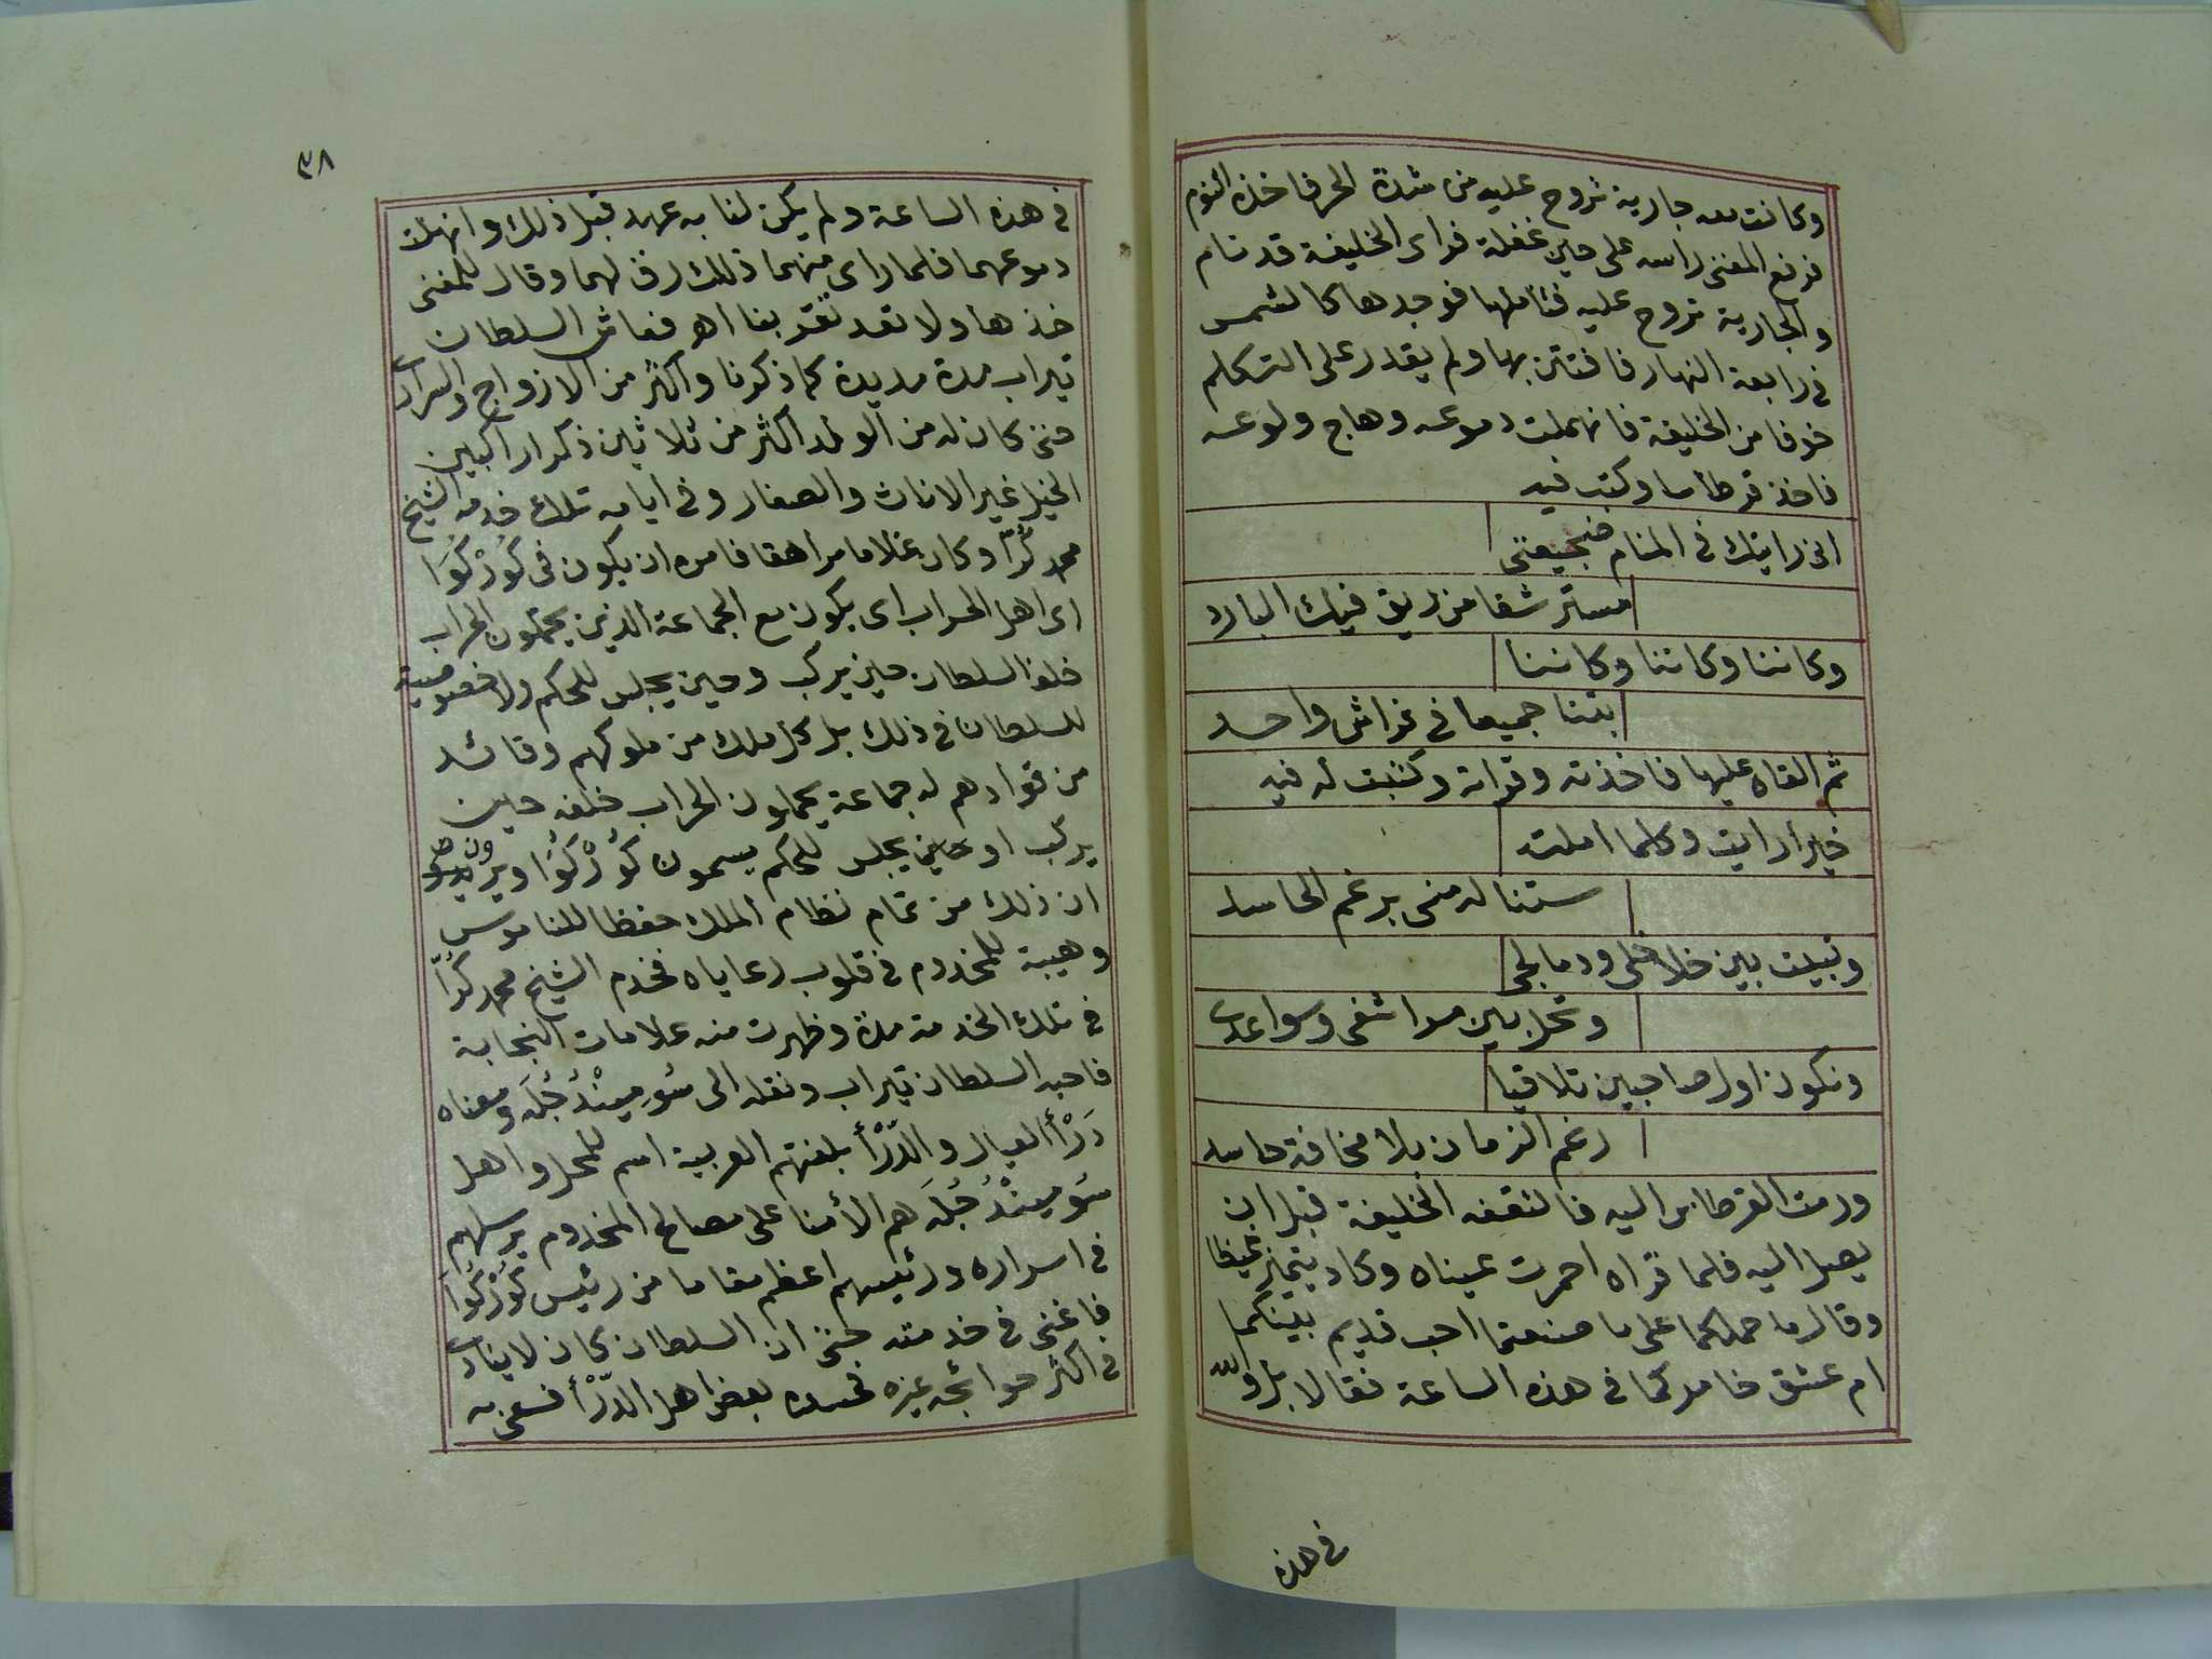 وكانت معه جارية تروح عليه من شدة الحر فاخذه النوم
فرفع المغنى راسه على حين غفلة فراى الخليفة قد نام
والجارية تروح عليه فتاملها فوجدها كالشمس
فى رابعة النهار فافتتن بها ولم يقدر على التكلم
خوفا من الخليفة فانهملت دموعه وهاج ولوعه
فاخذ قرطاسا وكتب فيه
انى رايتك فى المنام ضجيعتى
مسترشفا من ريق فيك البارد
وكاننا وكاننا وكاننا
بتنا جميعا فى فراش واحد
ثم القاه عليها فاخذته وقراته وكتبت له فيه
خيرا رايت وكلما املته
ستناله منى برغم الحاسد
وتبيت بين خلاخلى ودمالجى
وتحل بين مراشفى وسواعدى
ونكون اول صاحبين تلاقيا
رغم الزمان بلا مخافة حاسد
ورمت القرطاس اليه فالتقفه الخليفة قبل ان
يصل اليه فلما قراه احمرت عيناه وكاد يتميز غيظا
وقال ما حملكما على ما صنعتما احب قديم بينكما
ام عشق خامركما فى هذه الساعة فقالا بل والله
فى هذه
٣٨
فى هذه الساعة ولم يكن لنا به عهد قبل ذلك وانهملت
دموعهما فلما راى منهما ذلك رق لهما وقال للمغنى
خذها ولا تعد تقربنا اهـ فعاش السلطان
تيراب مدة مديدة كما ذكرنا واكثر من الازواج والسرارى
حتى كان له من الولد اكثر من ثلاثين ذكرا راكبين
الخيل غير الاناث والصغار وفى ايامه تلك خدمه الشيخ
محمد كُرّا وكان غلاما مراهقا فامره ان يكون فى كُوْرْكُوَا
اى اهل الحراب اى يكون مع الجماعة الذين يحملون الحراب
خلف السلطان حين يركب وحين يجلس للحكم ولا خصوصية
للسلطان فى ذلك بل كل ملك من ملوكهم وقائد
من قوادهم له جماعة يحملون الحراب خلفه حين
يركب او حين يجلس للحكم يسمون كُوْرْكُوَا ويرون
ان ذلك من تمام نظام الملك حفظا للناموس
وهيبة للمخدوم فى قلوب رعاياه فخدم الشيخ محمد كُرّا
فى تلك الخدمة مدة وظهرت منه علامات النجابة
فاحبه السلطان تيراب ونقله الى سُومِينْدُجُلَه ومعناه
دَرْأ العيال والدَّرْأ بلغتهم العربية اسم للمحل واهل
سُومِينْدُجُلَه هم الأمنا على مصالح المخدوم يرسلهم
فى اسراره ورئيسهم اعظم مقاما من رئيس كُوْرْكُوَا
فاغنى فى خدمته حتى ان السلطان كان لا ينادى
فى اكثر حوائجه غيره فحسده بعض اهل الدَّرْأ فسعى به